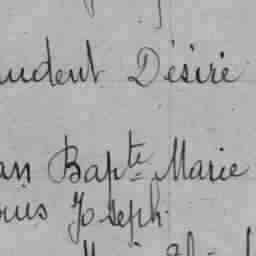 udent Désiré
an Bapte Marie
ouis Joseph